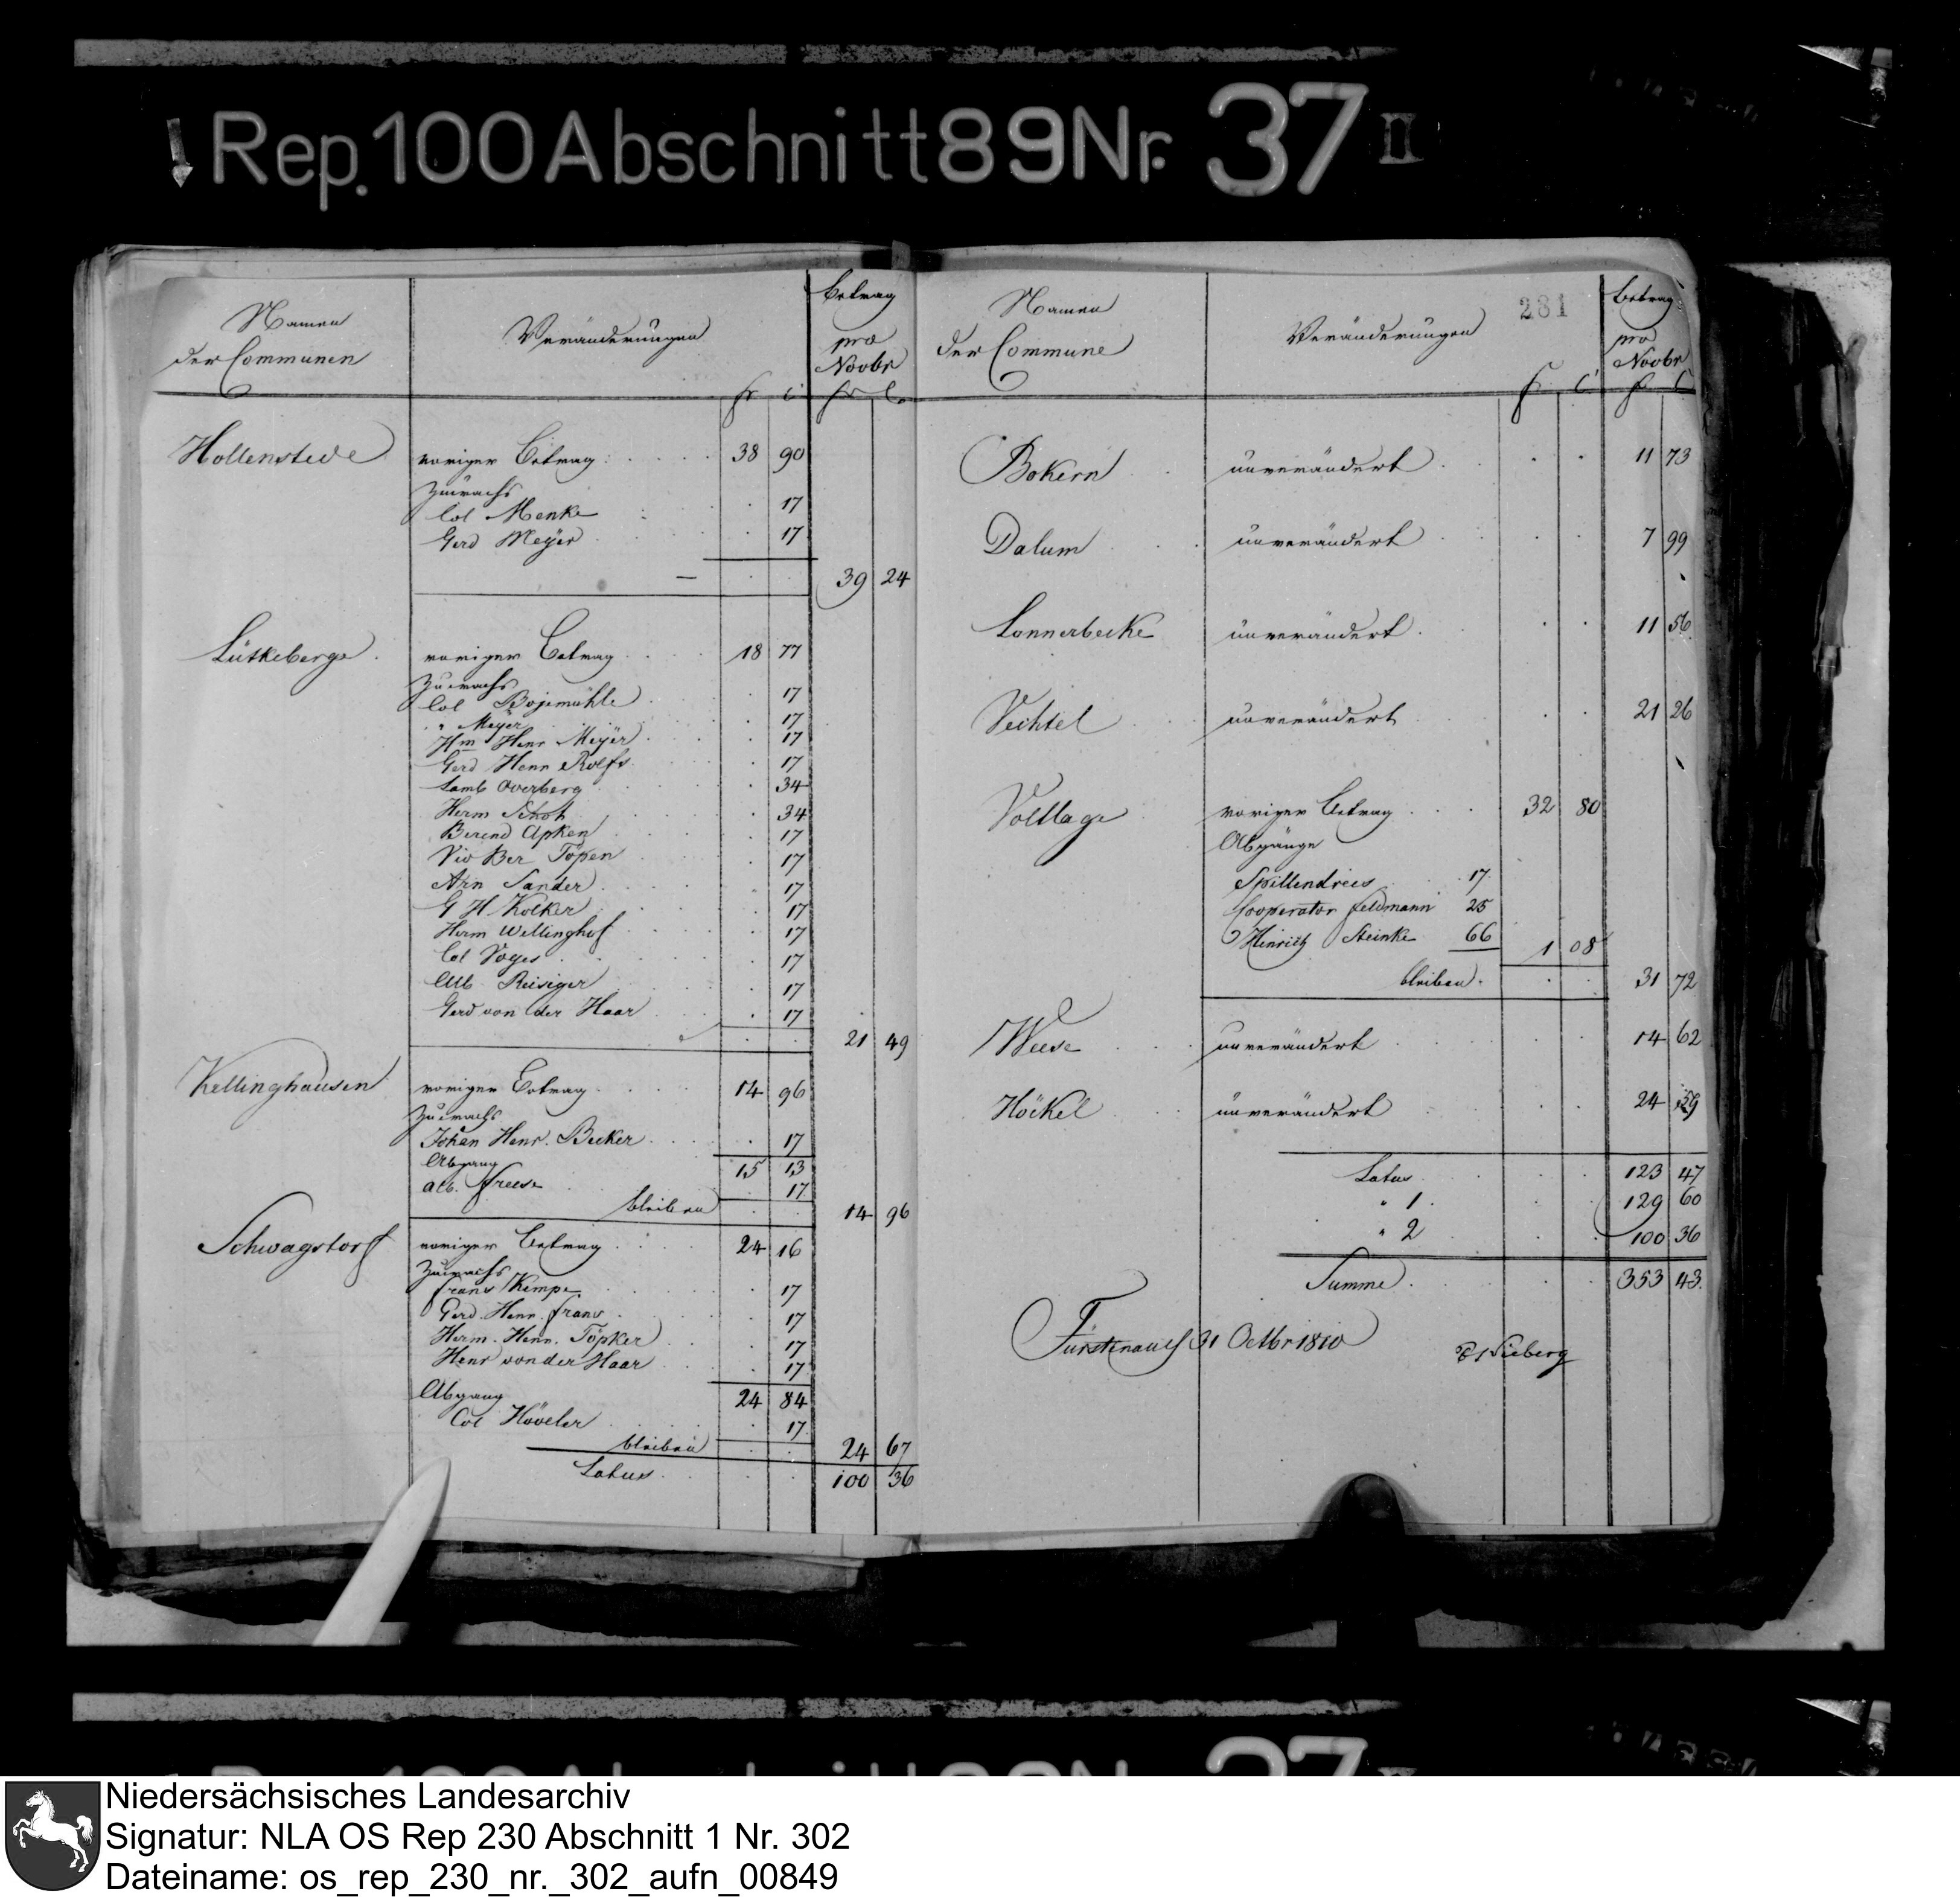 Rep. 100 Abschnitt 89 Nr. 37 II
Namen der Communen
Veränderungen
Betrag pro Novbr
fr c fr c
Hollenstede voriger Betrag 38 90
Zuwachs
Col Menke 17
Gerd Meÿer 17
39 24
Lütkeberge voriger Betrag 18 77
Zuwachs
Col Bojemühle 17
" Meyer 17
Hm Henr Meÿer 17
Gerd Henr Rolfs 17
Lamb Overberg 34
Herm Schoh 34
Berend Apken 17
Vid Ber Töpen 17
Arn Sander 17
G H Kolker 17
Herm Wellinghof 17
Col Voges 17
Alb Reisiger 17
Gerd von der Haar 17
21 49
Kellinghausen voriger Betrag 14 96
Zuwachs
Johan Henr. Becker 17
Abgang 15 13
Alb. Freese 17
bleiben 14 96
Schwagstorf voriger Betrag 24 16
Zuwachs
Frans Kempe 17
Gerd. Henr. Frans 17
Herm. Henr. Töpker 17
Henr von der Haar 17
Abgang 24 84
Col Höveler 17
bleiben 24 67
Latus 100 36
281
Namen der Commune
Veränderungen
Betrag pro Novbr
fr c fr c
Bokern unverändert 11 73
Dalum unverändert 7 99
Lonnerbecke unverändert 11 56
Vechtel unverändert 21 26
Voltlage voriger Betrag 32 80
Abgänge
Spillendrees 17
Cooperator Feldmann 25
Hinrich Steinke 66 1 08
bleiben 31 72
Weese unverändert 14 62
Höckel unverändert 24 59
Latus 123 47
" 1 129 60
" 2 100 36
Summe 353 43
Fürstenau 31 Octbr 1810
Sieberg
Niedersächsisches Landesarchiv
Signatur: NLA OS Rep 230 Abschnitt 1 Nr. 302
Dateiname: os_rep_230_nr._302_aufn_00849